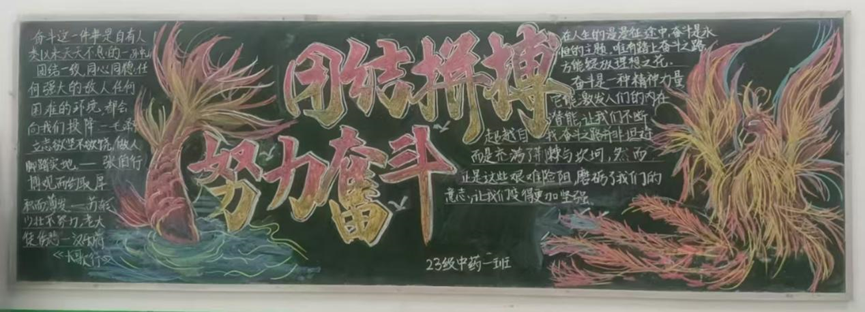 奋斗这一件事是自有人
类以来天天不息的
团结一致,同心同德,任
何强大的敌人,任何
困难的环境,都会
向我们投降
立志欲坚不欲锐,做人
脚踏实地
博观而约取,厚
积而薄发
少壮不努力,老大
徒伤悲——汉乐府
《长歌行》
团结拼搏
努力奋斗
在人生的漫漫征途中,奋斗是永
恒的主题,唯有踏上奋斗之路
方能绽放理想之花.
奋斗是一种精神力量
它能激发人们的内在
潜能,让我们不断
超越自我,奋斗之路并非坦途
而是充满荆棘与坎坷,然而
正是这些艰难险阻,磨砺了我们的
意志,让我们变得更加坚强.
23级中药二班